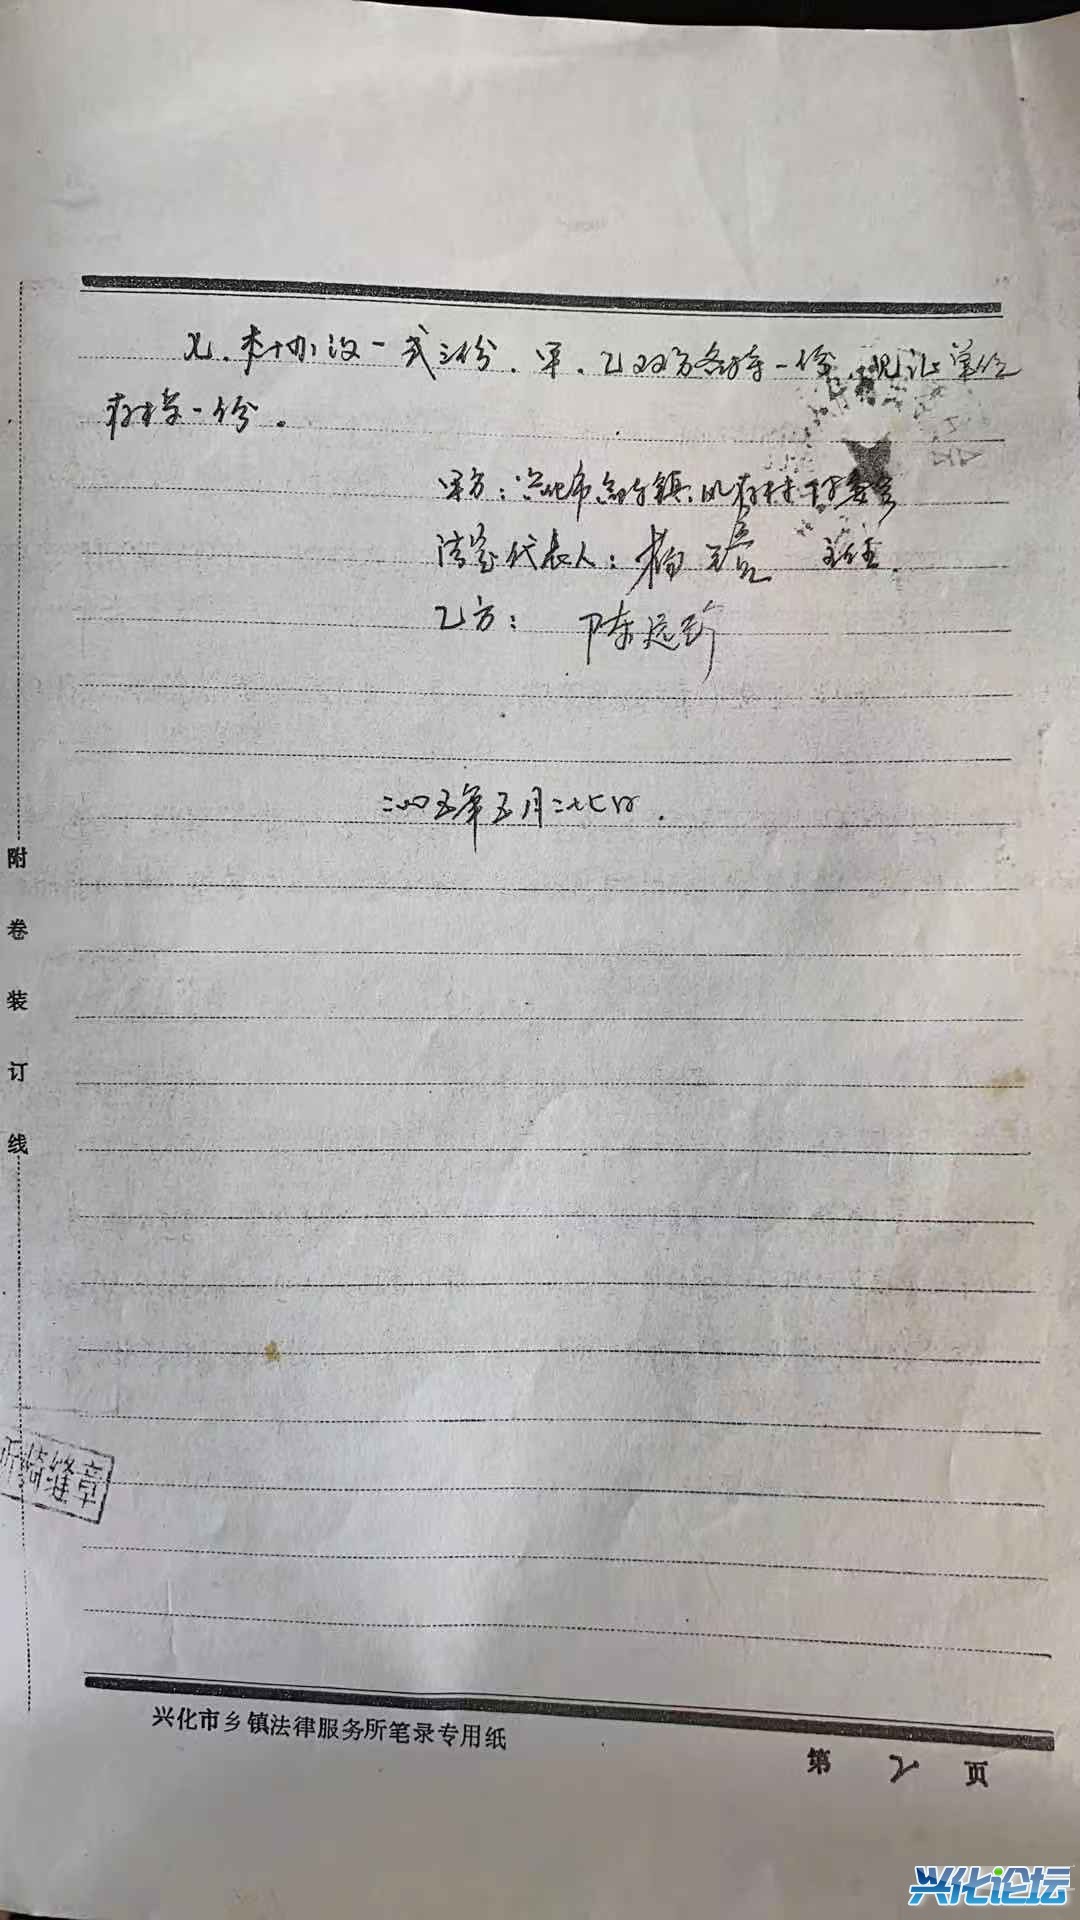 九、本协议一式三份，甲、乙双方各持一份，见证单位
存档一份。
甲方：兴化市 镇 村村委会
法定代表人：杨 主任
乙方：陈远
二〇〇五年五月二十七日
附卷装订线
所骑缝章
兴化市乡镇法律服务所笔录专用纸
第 2 页
兴化论坛